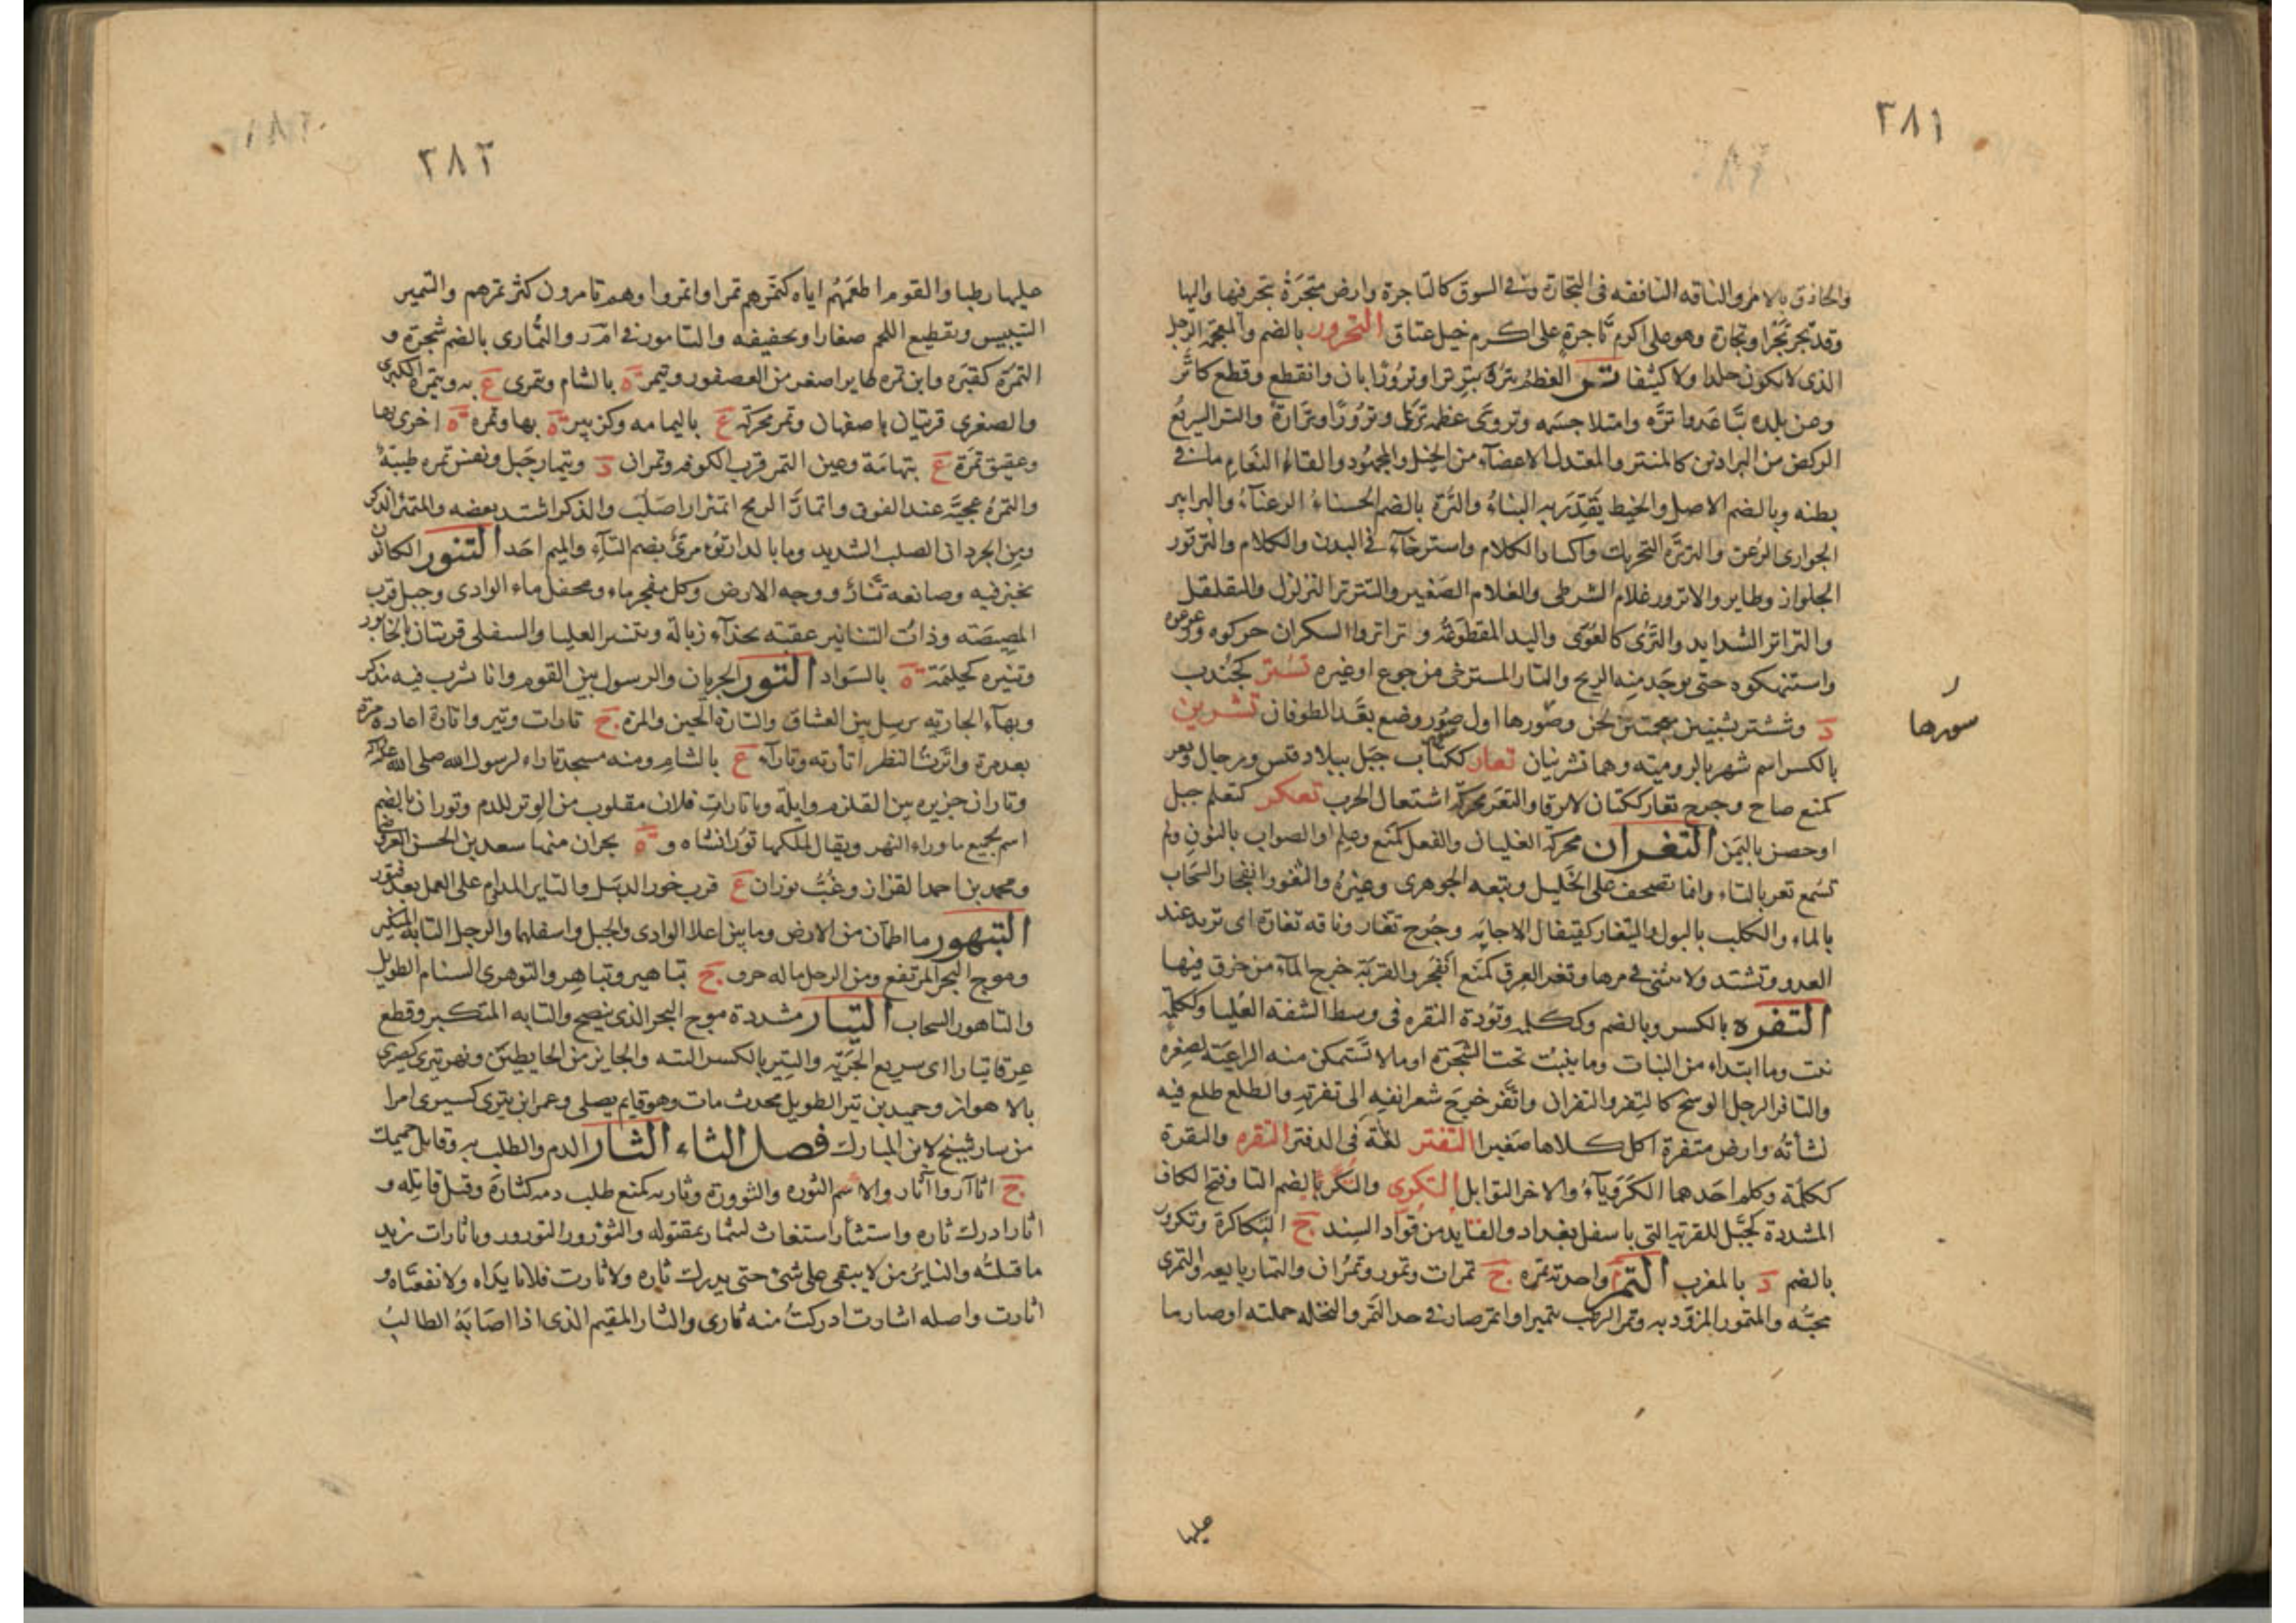 ٢٨١
والحاذق بالامر والناقه النافقه فى التجارة وفى السوق كالتاجرة وارض متجرة يتجر فيها واليها
وقد تجر تجرا وتجارة وهو على اكرم تاجرة على اكرم خيل عتاق التحرور بالضم والمعجمة الرجل
الذى لا يكون جلدا ولا كثيفا تر العظم يتر ويتر ترا وترورا بان وانقطع وقطع كاتر
وعن بلده تباعد واتره وامتلا جسمه وتروى عظمه ترى وترورا وترارة والتر السريع
الركض من البراذين كالمنتر والمعتدل الاعضاء من الخيل والمجهود والقاء النعام ما فى
بطنه وبالضم الاصل والخيط يقدر به البناء والترة بالضم الحسناء الرعناء والبرابير
الجوارى الرعن والترترة التحريك واكثار الكلام واسترخاء فى البدن والكلام والترتور
الجلواز وطاير والاترور غلام الشرطى والغلام الصغير والتترتر التزلزل والتقلقل
والتراتر الشدايد والترى كالعوى واليد المقطوعة وتراتروا السكران حركوه وزعزعوه
واستنهكوه حتى يوجد منه الريح والتار المسترخى من جوع او غيره تستر كجندب
د وششتر بشينين معجمتين لحن وصورها اول صور وضع بعد الطوفان تشرين
سورها
بالكسر اسم شهر بالرومية وهما تشرينان تعار ككتاب جبل ببلاد قيس ورجال وتعر
كمنع صاح وجرح تعار ككتان لا يرقا والتعر محركة اشتعال الحرب تعكر كتعلم جبل
او حصن باليمن التغران محركة الغليان والفعل كمنع وعلم او الصواب بالنون ولم
تسمع تعر بالتاء وانما تصحف على الخليل وتبعه الجوهرى وغيره والتغور انفجار السحاب
بالماء والكلب بالبول والتيغار كقيفال الاجانه وجرح تغار وناقه تغارة اى تزيد عند
العدو وتشتد ولا تنثنى فى مرها وتغر العرق كمنع انفجر والقربة خرج الماء من خرق فيها
التفره بالكسر وبالضم وككلمه وتؤدة النقره فى وسط الشفة العليا وككلمه
نبت وما ابتداء من النبات وما ينبت تحت الشجرة او ما لا تستمكن منه الراعية لصغره
والتافر الرجل الوسخ كالتفر والتفران واتفر خرج شعر انفه الى تفرته والطلع طلع فيه
نشأته وارض متفرة اكل كلاها صغيرا التفتر لغة فى الدفتر التقره والتقرة
ككلمة وكلم احدهما الكرويآء والاخر التوابل التكرى والتكر بالضم التا وفتح الكاف
المشددة كجبل للقرية التى باسفل بغداد والقايد من قواد السند ج التكاكرة وتكرور
بالضم د بالمغرب التمر واحدته تمره ج تمرات وتمور وتمران والتمار بايعه والتمرى
محبه والمتمور المزود به وتمر الرطب تتميرا واتمر صار فى حد التمر والنخله حملته او صار ما
عليها
٢٨٢
عليها رطبا والقوم اطعمهم اياه كتمرهم تمرا واتمروا وهم تامرون كثر تمرهم والتتمير
التيبيس وتقطيع اللحم صغارا وتجفيفه والتامور فى ا م ر والتمارى بالضم شجرة و
التمره كقبره وابن تمره طاير اصغر من العصفور وتيمر ة بالشام وتمرى ع به وتيمره الكبرى
والصغرى قريتان باصفهان وتمر محركة ع باليمامه وكزبير ة بها وتمره ة اخرى بها
وعقيق تمرة ع بتهامة وعين التمر قرب الكوفه وتمران د وتيمار جبل ونفس تمره طيبة
والتمرة عجيَّة عند الفوق واتمأر الرمح اتمئرارا صلب والذكر اشتد بعضه والمتمئر الذكر
ومن الجردان الصلب الشديد وما بالدار تؤمرى بضم التاء والميم احد التنور الكانون
يخبز فيه وصانعه تنار ووجه الارض وكل مفجر ماء ومحفل ماء الوادى وجبل قرب
المصيصه وذات التنانير عقبه بحذاء زبالة وتنير العليا والسفلى قريتان بالخابور
وتنيره كحليمة ة بالسواد التور الجريان والرسول بين القوم وانا يشرب فيه مذكر
وبهاء الجاريه ترسل بين العشاق والتارة الحين والمرة ج تارات وتير واتارة اعاده مرة
بعد مرة واترت النظر اتأرته وتاراء ع بالشام ومنه مسجد تاراء لرسول الله صلى الله عليه وسلم
وتاران جزيره بين القلزم وايلة ويا تارات فلان مقلوب من الوتر للدم وتوران بالضم
اسم لجميع ما وراء النهر ويقال لملكها توران شاه و ة بحران منها سعد بن الحسن العروضى
ومحمد بن احمد القزاز وغب توران ع قرب خور الديبل والتاير المداوم على العمل بعد فتور
التيهور ما اطمأن من الارض وما بين اعلا الوادى والجبل واسفلهما والرجل التايه المتكبر
وموج البحر المرتفع ومن الرمل ما له جرف ج تياهير وتياهر والتوهرى السنام الطويل
والتاهور السحاب التيار مشددة موج البحر الذى ينضح والتايه المتكبر وقطع
عرقا تيارا اى سريع الجرية والتير بالكسر التيه والجايز من الحايطين ونهر تيرى كضيزى
بالاهواز وحميد بن تير الطويل محدث مات وهو قايم يصلى وعمر ابن تيرى كسيرى امرا
من سار شيخ لابن المبارك فصل الثاء الثار الدم والطلب به وقاتل حميمك
ج اثآر وآثار والاسم الثؤره والثوورة وثار به كمنع طلب دمه كثاره وقتل قاتله و
اثارا درك ثاره واستثأر استغاث ليثار بمقتوله والثؤرور التورور ويا ثارات زيد
ما قتلته والثاير من لا يبقى على شئ حتى يدرك ثاره ولا ثارت فلانا يداه ولا نفعتاه و
اثارت واصله اثتارت ادركت منه ثارى والثار المقيم الذى اذا اصابه الطالب